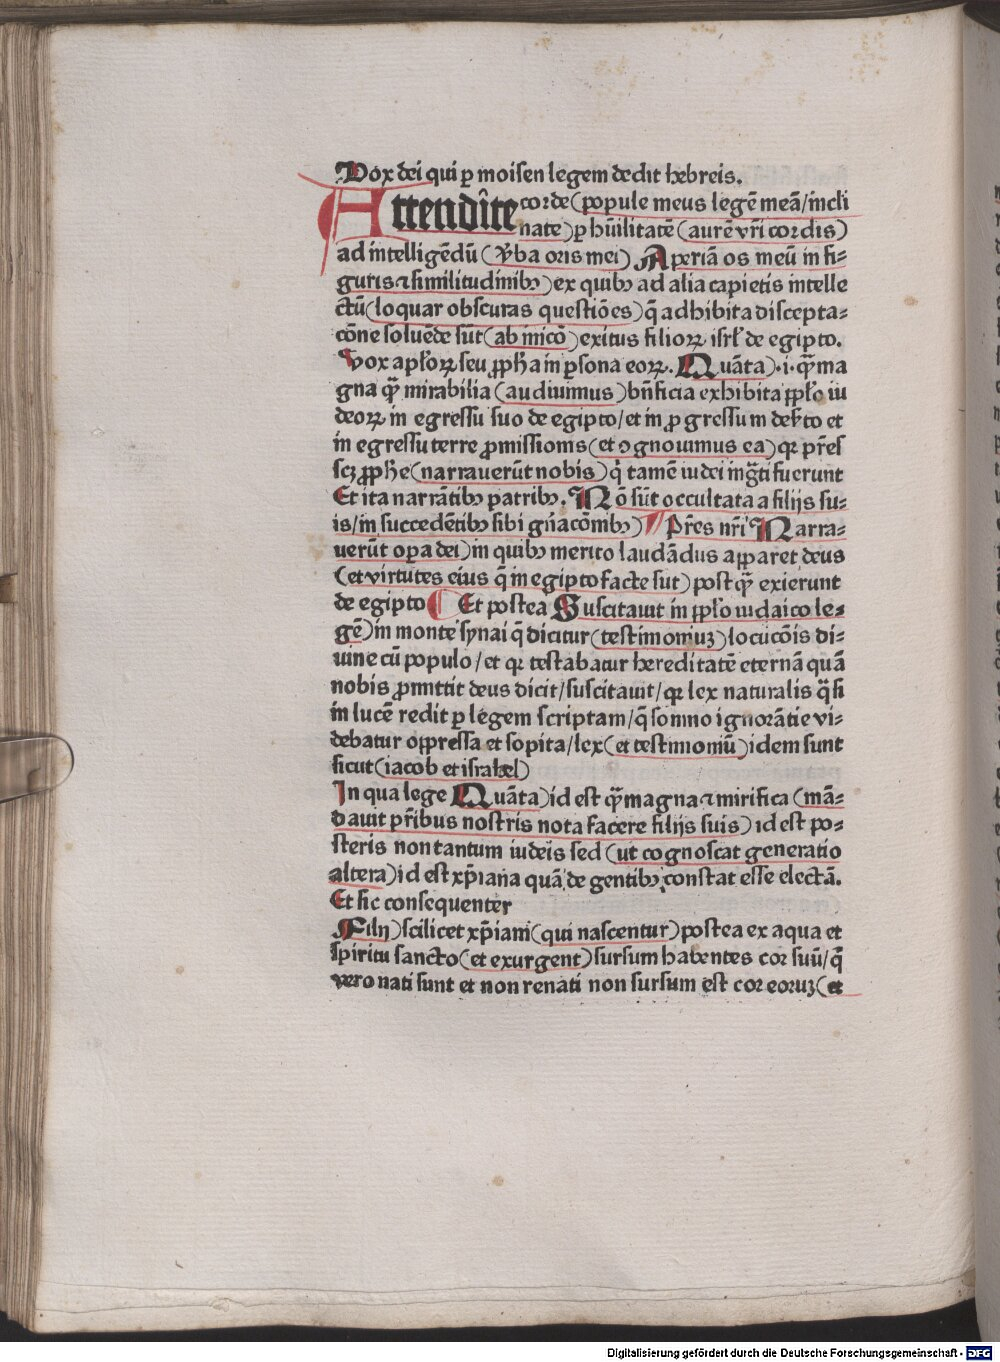 Vox dei qui ꝑ moisen legem dedit hebreis.
Attendîte corde (popule meus legē meā/incli
nate) ꝑ hūilitatē (aurē vr̄i cordis)
ad intelligēdū (v̾ba oris mei) Aperiā os meū in fi⸗
guris ⁊ similitudinibꝫ) ex quibꝫ ad alia capietis intelle
ctū (loquar obscuras questiōes) q̄ adhibita discepta⸗
cōne soluēde sūt (ab inicō) exitus filioꝝ isrl̄ de egipto.
Vox apl̄oꝝ seu ꝓph̄a in ꝑsona eoꝝ. Quāta) .i. q̄ꝫ ma
gna q̄ꝫ mirabilia (audiuimus) bn̄ficia exhibita ppl̄o iu
deoꝝ in egressu suo de egipto/et in ꝓgressu m deẜto et
in egressu terre ꝓmissionis (et ꝯgnouimus ea) qꝛ pr̄es
scꝫ ꝓph̄e (narrauerūt nobis) q̇ tamē iudei ingͣti fuerunt
Et ita narrātibꝫ patribꝫ. Nō sūt occultata a filijs su⸗
is/in succedētibꝫ sibi gn̄acōnibꝫ) ¶ Pr̄es nr̄i Narra⸗
uerūt oꝑa dei) in quibꝫ merito laudādus apparet deus
(et virtutes eius q̄ in egipto facte sūt) post q̄ꝫ exierunt
de egipto ¶ Et postea Suscitauit in ppl̄o iudaico le⸗
gē) in monte synai q̄ dicitur (testimoniuꝫ) locucōis di⸗
uine cū populo/et qꝛ testabatur hereditatē eternā quā
nobis ꝓmittit deus dicit/suscitauit/qꝛ lex naturalis q̄si
in lucē redit ꝑ legem scriptam/q̄ somno ignorātie vi⸗
debatur oppressa et sopita/lex (et testimoniū) idem sunt
sicut (iacob et israhel)
In qua lege Quāta) id est q̄ꝫ magna ⁊ mirifica (mā⸗
dauit pr̄ibus nostris nota facere filijs suis) id est po⸗
steris non tantum iudeis sed (ut cognoscat generatio
altera) id est xp̄iana quā de gentibꝫ constat esse electā.
Et sic consequenter
Filij) scilicet xp̄iani (qui nascentur) postea ex aqua et
spiritu sancto (et exurgent) sursum habentes cor suū/q̄
vero nati sunt et non renati non sursum est cor eoruꝫ (et
Digitalisierung gefördert durch die Deutsche Forschungsgemeinschaft - DFG